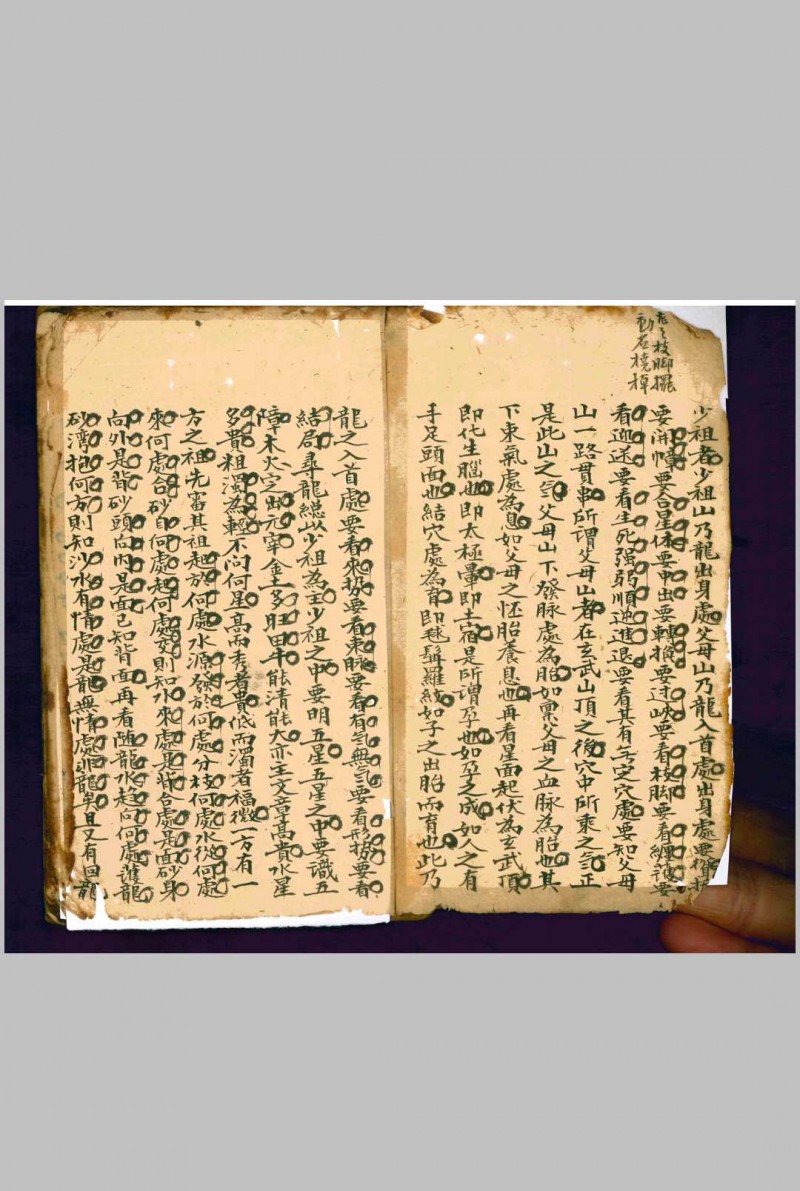 枝脚擺
動
少祖者少祖山乃龍出身處父母山乃龍入首處出身處要
要開幛要合星体要中出要轉換要过峽要看枝脚要看纏護要
看迎送要看生死强弱順逆進退要看其有無定穴處要知父母
山一路貫串所謂父母山者在玄武山頂之後穴中所乘之氣正
是此山之氣父母山下發脉處為胎如禀父母之血脉為胎也其
下束氣處為息如父母之怀胎養息也再看星面起伏為玄武頂
即化生腦也即太極暈即土宿是所謂孕也如孕之成如人之有
手足頭面也結穴處為育即毬髯羅紋如子之出胎而育也此乃
龍之入首處要看來势要看束脉要看有气無气要看形势要看
結局尋龍總以少祖為主少祖之中要明五星五星之中要識五
障木火定出元宰金土多旺田牛能清能大亦主文章高貴水星
多散粗濁為輕不问何星高而秀者貴低而濁者福微一方有一
方之祖先審其祖起於何處水源發於何處分枝何處水從何處
來何處合砂自何處起何處交則知水來處是背合處是面砂身
向外是背砂頭向内是面已知背面再看随龍水趋向何處護龍
砂湾抱何方則知沙水有情處是龍無情處非龍矣且又有回龍